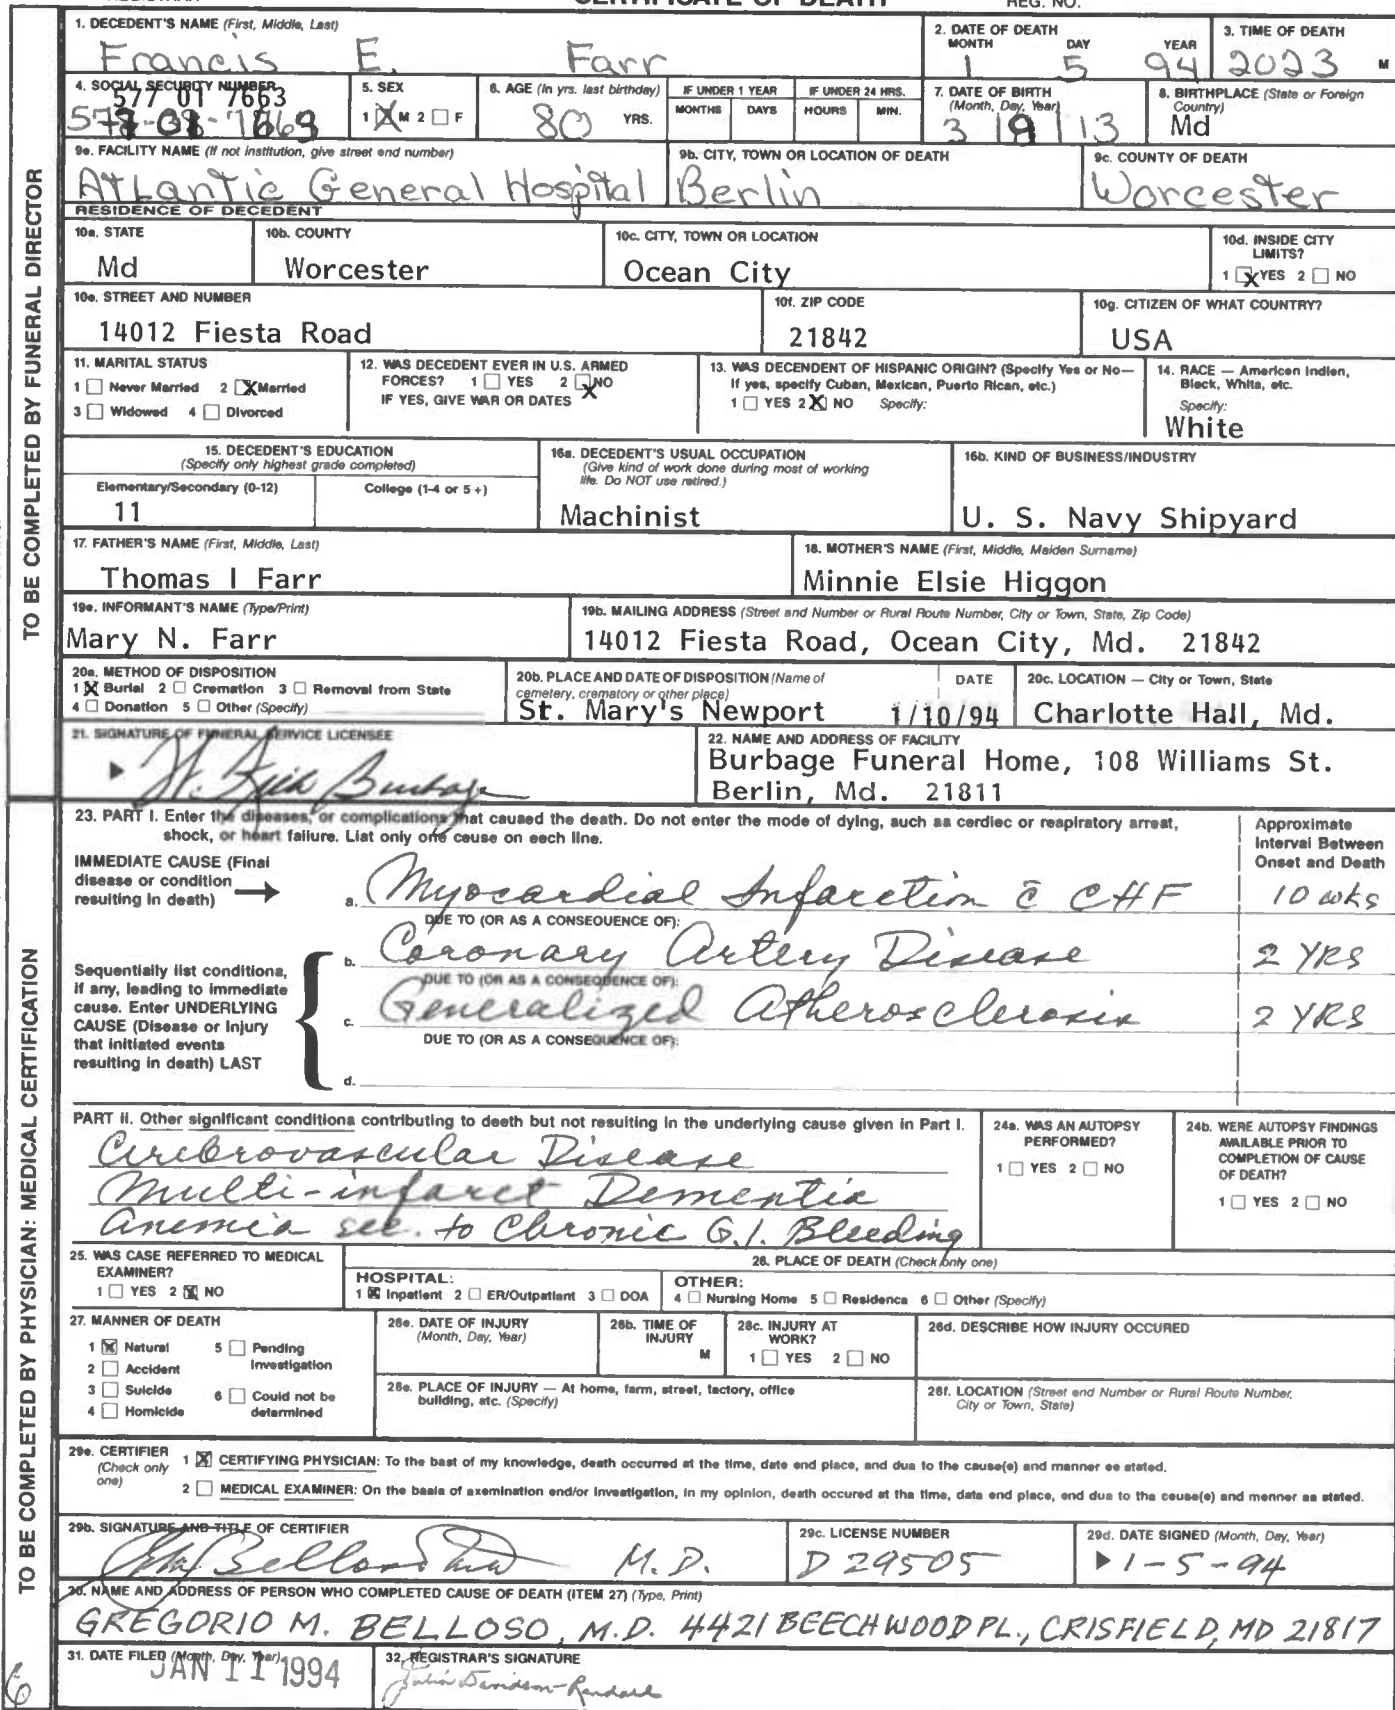 CERTIFICATE OF DEATH
REG. NO.
TO BE COMPLETED BY FUNERAL DIRECTOR
1. DECEDENT'S NAME (First, Middle, Last)
Francis E. Farr
2. DATE OF DEATH
MONTH DAY YEAR
1 5 94
3. TIME OF DEATH
2023 M
4. SOCIAL SECURITY NUMBER
577 01 7663
5. SEX
1 ☒ M 2 ☐ F
6. AGE (In yrs. last birthday)
80 YRS.
IF UNDER 1 YEAR
MONTHS DAYS
IF UNDER 24 HRS.
HOURS MIN.
7. DATE OF BIRTH
(Month, Day, Year)
3 9 13
8. BIRTHPLACE (State or Foreign
Country)
Md
9a. FACILITY NAME (If not institution, give street and number)
Atlantic General Hospital
9b. CITY, TOWN OR LOCATION OF DEATH
Berlin
9c. COUNTY OF DEATH
Worcester
RESIDENCE OF DECEDENT
10a. STATE
Md
10b. COUNTY
Worcester
10c. CITY, TOWN OR LOCATION
Ocean City
10d. INSIDE CITY
LIMITS?
1 ☒ YES 2 ☐ NO
10e. STREET AND NUMBER
14012 Fiesta Road
10f. ZIP CODE
21842
10g. CITIZEN OF WHAT COUNTRY?
USA
11. MARITAL STATUS
1 ☐ Never Married 2 ☒ Married
3 ☐ Widowed 4 ☐ Divorced
12. WAS DECEDENT EVER IN U.S. ARMED
FORCES? 1 ☐ YES 2 ☒ NO
IF YES, GIVE WAR OR DATES
13. WAS DECENDENT OF HISPANIC ORIGIN? (Specify Yes or No—
If yes, specify Cuban, Mexican, Puerto Rican, etc.)
1 ☐ YES 2 ☒ NO Specify:
14. RACE — American Indian,
Black, White, etc.
Specify:
White
15. DECEDENT'S EDUCATION
(Specify only highest grade completed)
Elementary/Secondary (0-12)
11
College (1-4 or 5 +)
16a. DECEDENT'S USUAL OCCUPATION
(Give kind of work done during most of working
life. Do NOT use retired.)
Machinist
16b. KIND OF BUSINESS/INDUSTRY
U. S. Navy Shipyard
17. FATHER'S NAME (First, Middle, Last)
Thomas I Farr
18. MOTHER'S NAME (First, Middle, Maiden Surname)
Minnie Elsie Higgon
19a. INFORMANT'S NAME (Type/Print)
Mary N. Farr
19b. MAILING ADDRESS (Street and Number or Rural Route Number, City or Town, State, Zip Code)
14012 Fiesta Road, Ocean City, Md. 21842
20a. METHOD OF DISPOSITION
1 ☒ Burial 2 ☐ Cremation 3 ☐ Removal from State
4 ☐ Donation 5 ☐ Other (Specify)
20b. PLACE AND DATE OF DISPOSITION (Name of
cemetery, crematory or other place)
St. Mary's Newport
DATE
1/10/94
20c. LOCATION — City or Town, State
Charlotte Hall, Md.
21. SIGNATURE OF FUNERAL SERVICE LICENSEE
Burbage
22. NAME AND ADDRESS OF FACILITY
Burbage Funeral Home, 108 Williams St.
Berlin, Md. 21811
TO BE COMPLETED BY PHYSICIAN: MEDICAL CERTIFICATION
23. PART I. Enter the diseases, or complications that caused the death. Do not enter the mode of dying, such as cardiac or respiratory arrest,
shock, or heart failure. List only one cause on each line.
Approximate
Interval Between
Onset and Death
IMMEDIATE CAUSE (Final
disease or condition
resulting in death) →
a. Myocardial Infarction c̄ CHF 10 wks
DUE TO (OR AS A CONSEQUENCE OF):
Sequentially list conditions,
if any, leading to immediate
cause. Enter UNDERLYING
CAUSE (Disease or Injury
that initiated events
resulting in death) LAST
b. Coronary Artery Disease 2 YRS
DUE TO (OR AS A CONSEQUENCE OF):
c. Generalized Atherosclerosis 2 YRS
DUE TO (OR AS A CONSEQUENCE OF):
d.
PART II. Other significant conditions contributing to death but not resulting in the underlying cause given in Part I.
Cerebrovascular Disease
Multi-infarct Dementia
Anemia sec. to Chronic G.I. Bleeding
24a. WAS AN AUTOPSY
PERFORMED?
1 ☐ YES 2 ☐ NO
24b. WERE AUTOPSY FINDINGS
AVAILABLE PRIOR TO
COMPLETION OF CAUSE
OF DEATH?
1 ☐ YES 2 ☐ NO
25. WAS CASE REFERRED TO MEDICAL
EXAMINER?
1 ☐ YES 2 ☒ NO
26. PLACE OF DEATH (Check only one)
HOSPITAL:
1 ☒ Inpatient 2 ☐ ER/Outpatient 3 ☐ DOA
OTHER:
4 ☐ Nursing Home 5 ☐ Residence 6 ☐ Other (Specify)
27. MANNER OF DEATH
1 ☒ Natural 5 ☐ Pending
Investigation
2 ☐ Accident
3 ☐ Suicide 6 ☐ Could not be
determined
4 ☐ Homicide
28a. DATE OF INJURY
(Month, Day, Year)
28b. TIME OF
INJURY
M
28c. INJURY AT
WORK?
1 ☐ YES 2 ☐ NO
28d. DESCRIBE HOW INJURY OCCURED
28e. PLACE OF INJURY — At home, farm, street, factory, office
building, etc. (Specify)
28f. LOCATION (Street and Number or Rural Route Number,
City or Town, State)
29a. CERTIFIER
(Check only
one)
1 ☒ CERTIFYING PHYSICIAN: To the best of my knowledge, death occurred at the time, date and place, and due to the cause(s) and manner as stated.
2 ☐ MEDICAL EXAMINER: On the basis of examination and/or investigation, in my opinion, death occured at the time, date and place, and due to the cause(s) and manner as stated.
29b. SIGNATURE AND TITLE OF CERTIFIER
Belloso M.D.
29c. LICENSE NUMBER
D 29505
29d. DATE SIGNED (Month, Day, Year)
1-5-94
30. NAME AND ADDRESS OF PERSON WHO COMPLETED CAUSE OF DEATH (ITEM 27) (Type, Print)
GREGORIO M. BELLOSO, M.D. 4421 BEECHWOOD PL., CRISFIELD, MD 21817
31. DATE FILED (Month, Day, Year)
JAN 11 1994
32. REGISTRAR'S SIGNATURE
Davidson-Randall
6